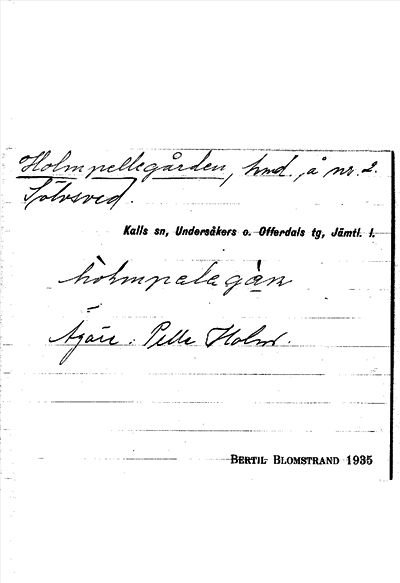 Holmpellegården, hmd. å nr. 2.
Sölvsved.
Kalls sn, Undersåkers o. Offerdals tg, Jämtl. l.
hòlmpelagàn
Ägare: Pelle Holm.
BERTIL BLOMSTRAND 1935